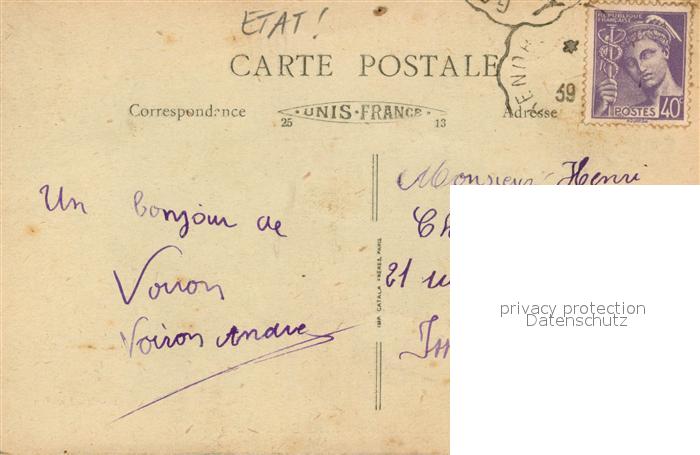 ETAT!
CARTE POSTALE
RÉPUBLIQUE FRANÇAISE
39
POSTES 40c
Correspondance
UNIS-FRANCE
25 13
Adresse
Monsieur Henri
Un bonjour de
Ch
Voiron
21
Voiron André
IMP. CATALA FRÈRES, PARIS
privacy protection
Datenschutz